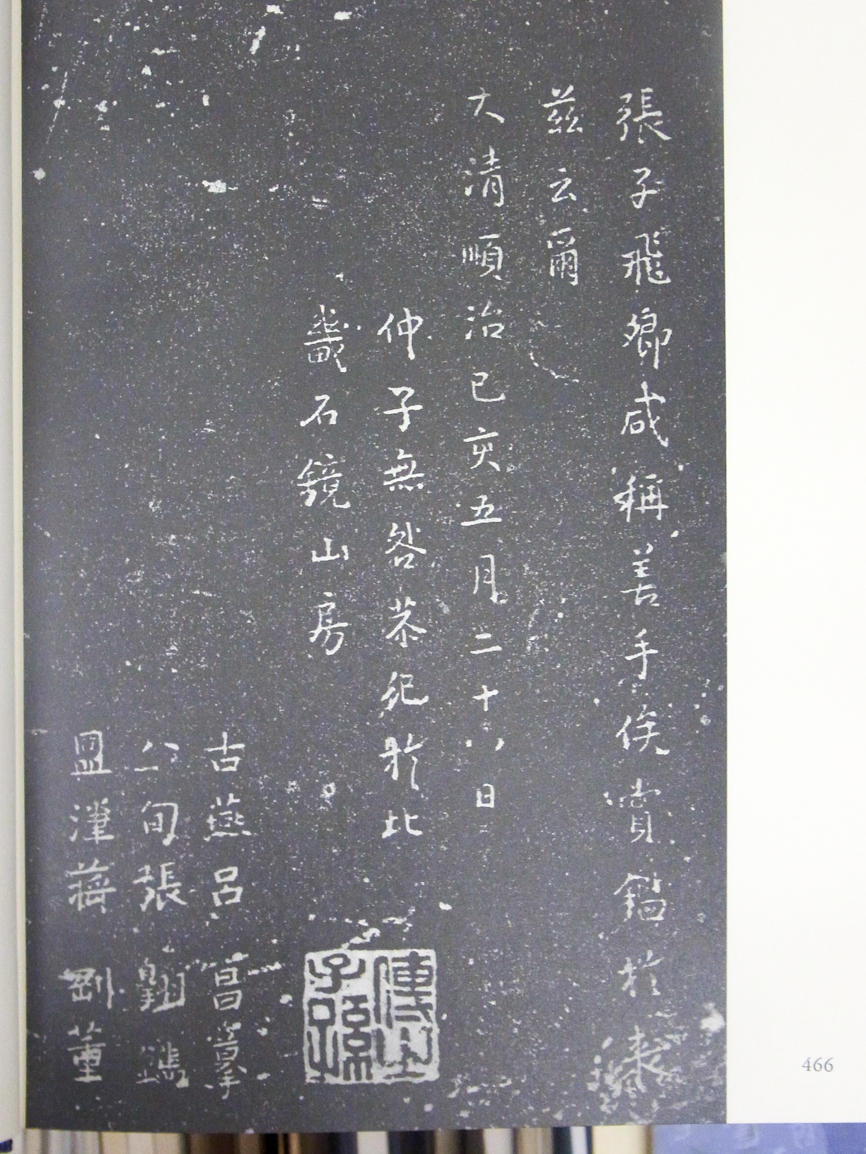 張子飛卿咸稱善手俟賞鑑於
茲云爾
大清順治己亥五月二十八日
仲子無咎恭紀於北
畿石鏡山房
古燕呂昌摹
公甸張翱鐫
盟津蔣劉董
傳世
子孫
466